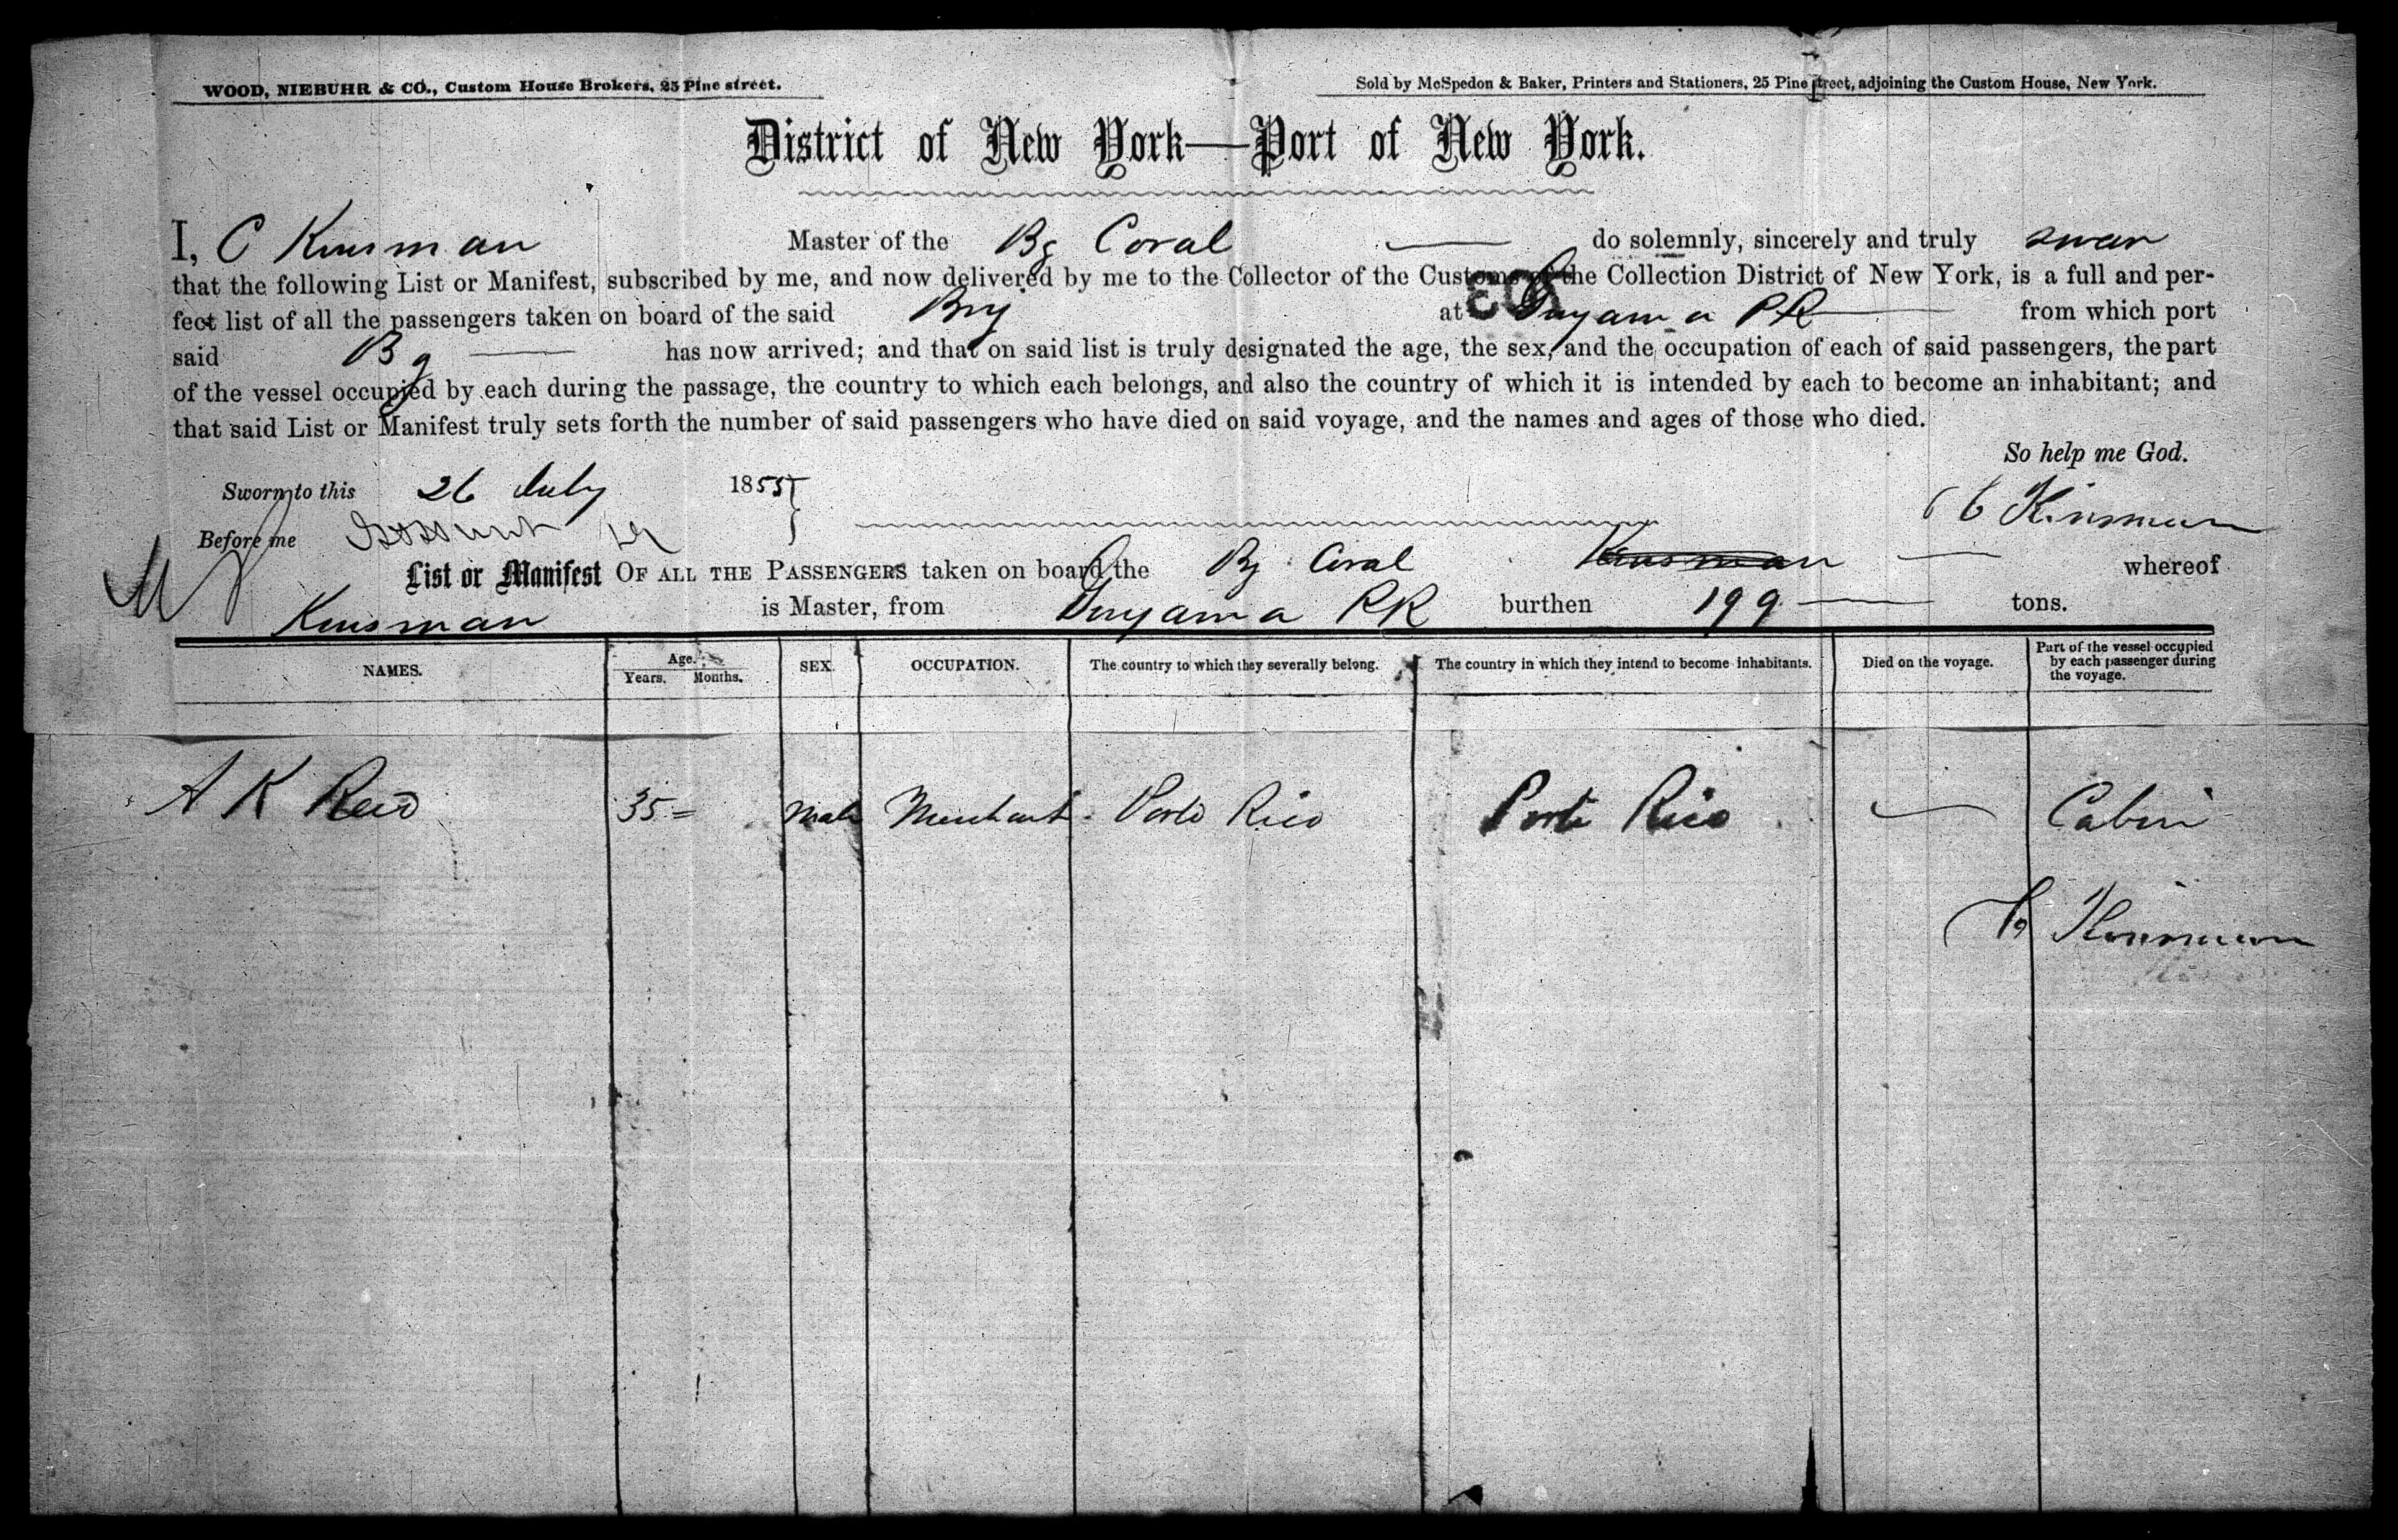 WOOD, NIEBUHR & CO., Custom House Brokers, 25 Pine street.
Sold by McSpedon & Baker, Printers and Stationers, 25 Pine street, adjoining the Custom House, New York.
District of New York—Port of New York.
I, C Kinsman Master of the Bg Coral do solemnly, sincerely and truly swear
that the following List or Manifest, subscribed by me, and now delivered by me to the Collector of the Customs of the Collection District of New York, is a full and per-
fect list of all the passengers taken on board of the said Brig at Guyama PR from which port
said Bg has now arrived; and that on said list is truly designated the age, the sex, and the occupation of each of said passengers, the part
of the vessel occupied by each during the passage, the country to which each belongs, and also the country of which it is intended by each to become an inhabitant; and
that said List or Manifest truly sets forth the number of said passengers who have died on said voyage, and the names and ages of those who died.
So help me God.
Sworn to this 26 July 1855
C Kinsman
Before me
List or Manifest OF ALL THE PASSENGERS taken on board the Bg Coral Kinsman whereof
Kinsman is Master, from Guyama PR burthen 199 tons.
NAMES. Age. Years. Months. SEX. OCCUPATION. The country to which they severally belong. The country in which they intend to become inhabitants. Died on the voyage. Part of the vessel occupied by each passenger during the voyage.
A K Reid 35 Male Merchant Porto Rico Porto Rico Cabin
C Kinsman